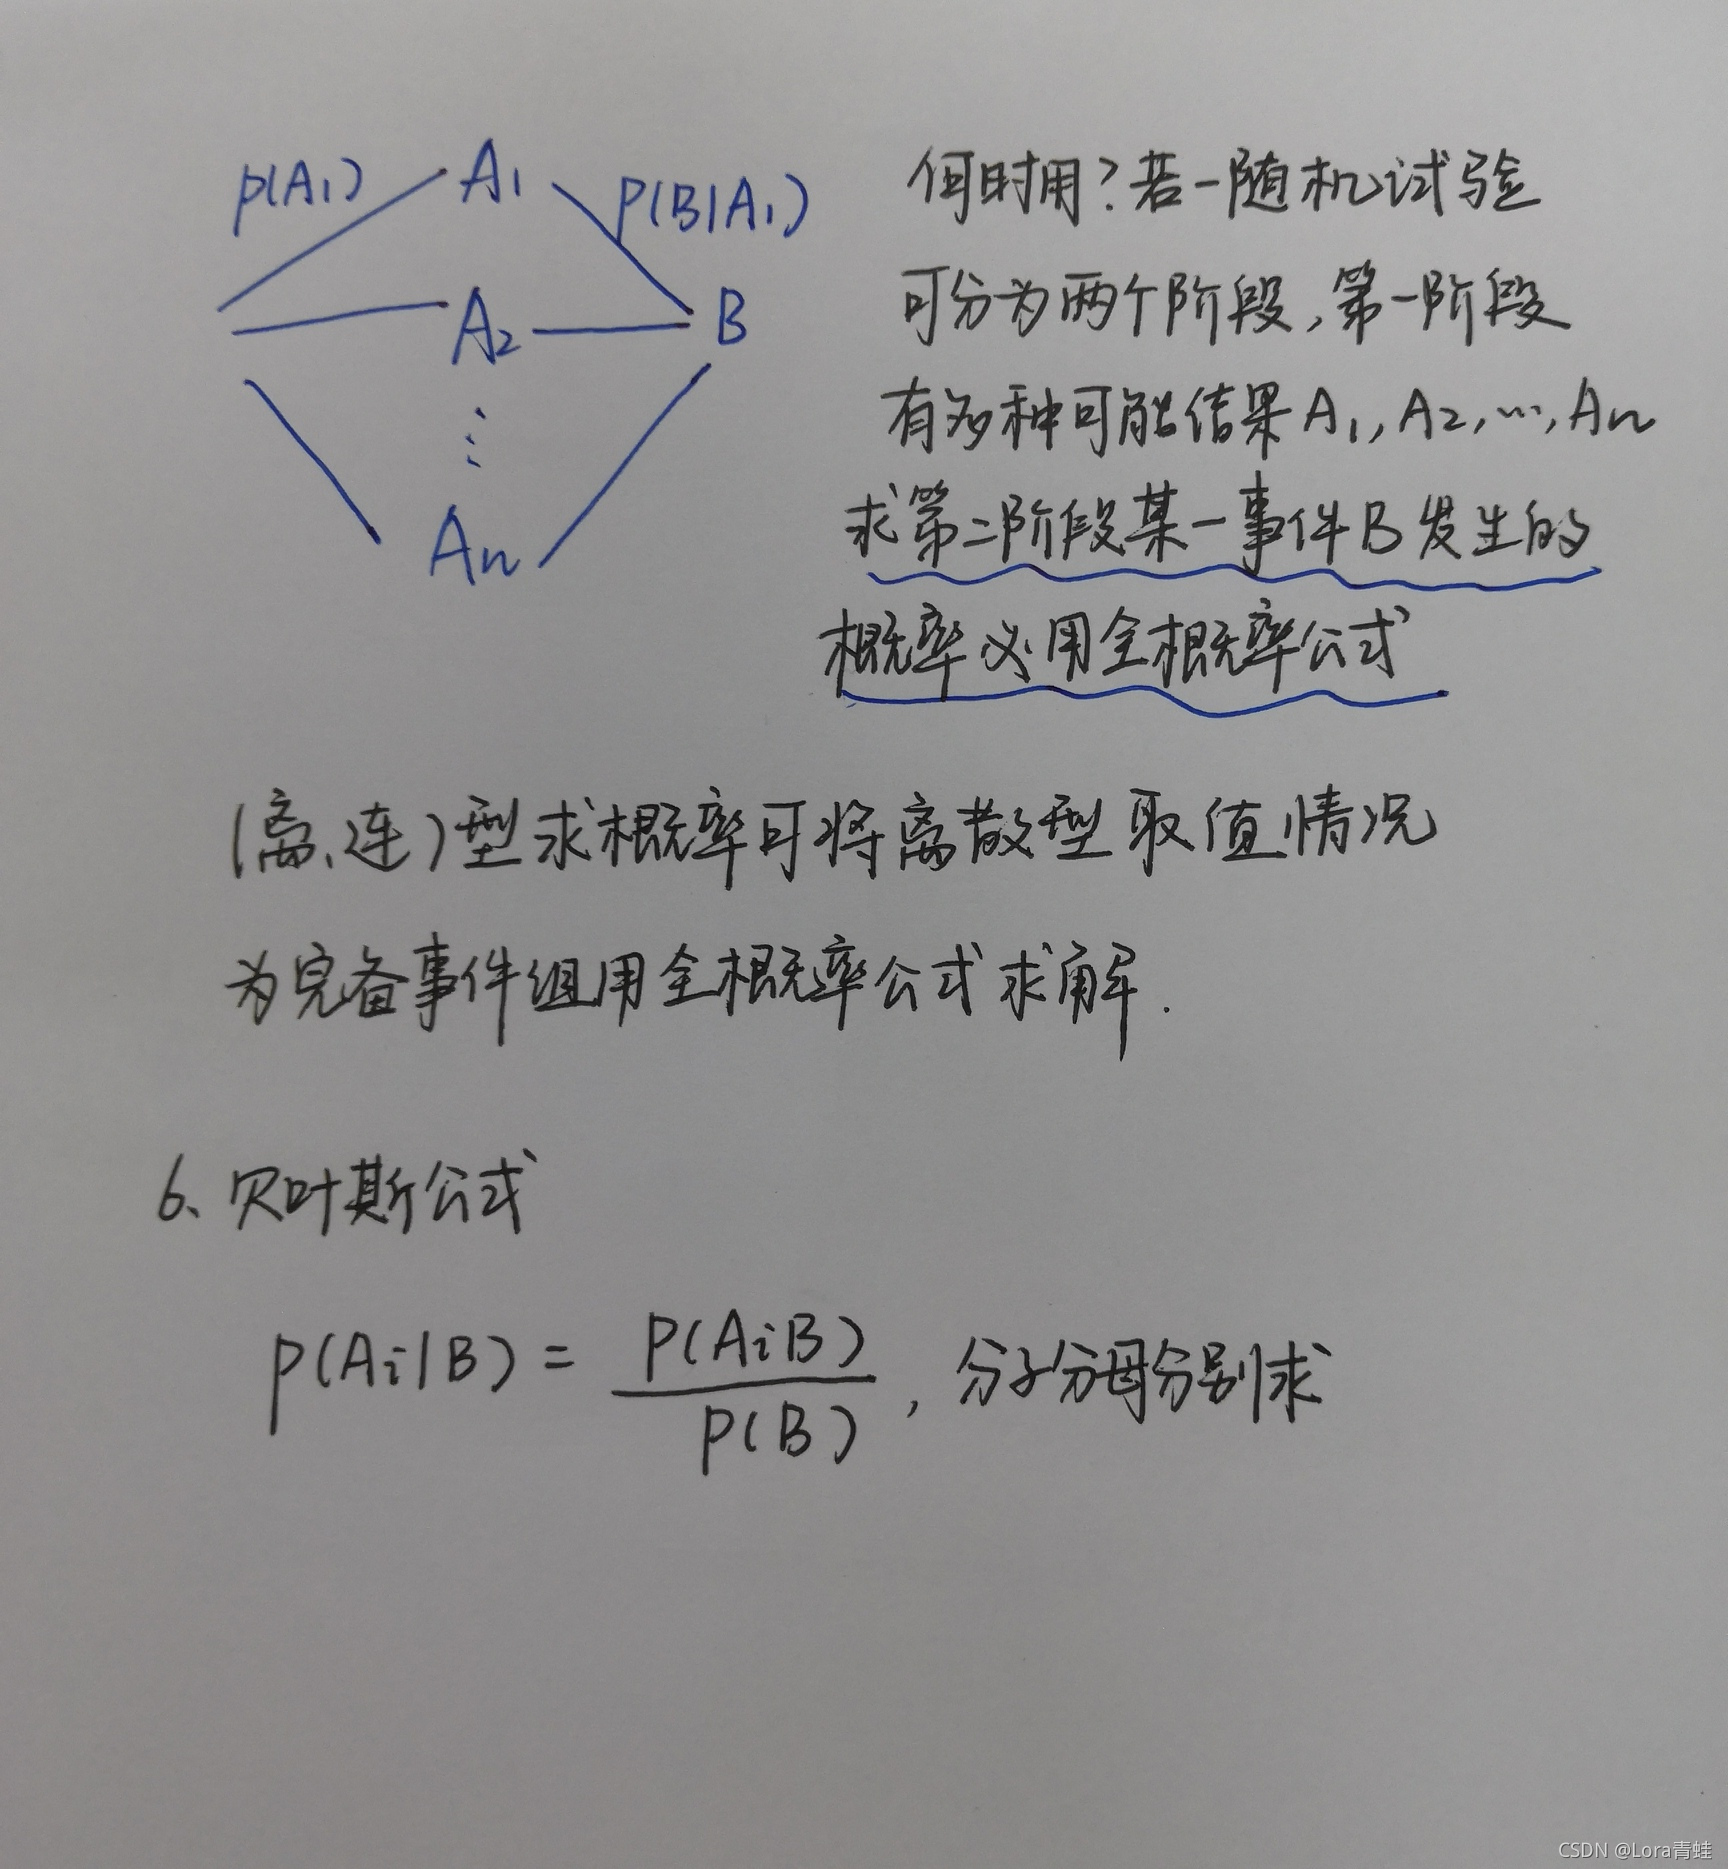 p(A₁) A₁ p(B|A₁)
A₂ B
⋮
Aₙ
何时用?若一随机试验
可分为两个阶段,第一阶段
有多种可能结果A₁,A₂,…,Aₙ
求第二阶段某一事件B发生的
概率必用全概率公式
(离、连)型求概率可将离散型取值情况
为完备事件组用全概率公式求解.
6、贝叶斯公式
p(Ai|B) = p(AiB) / p(B) , 分子分母分别求
CSDN @Lora青蛙